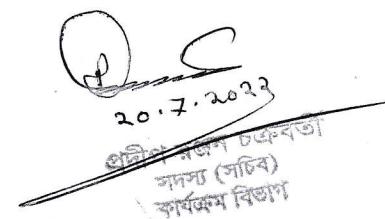 20.7.2022
প্রদীপ রঞ্জন চক্রবর্তী
সদস্য (সচিব)
কার্যক্রম বিভাগ